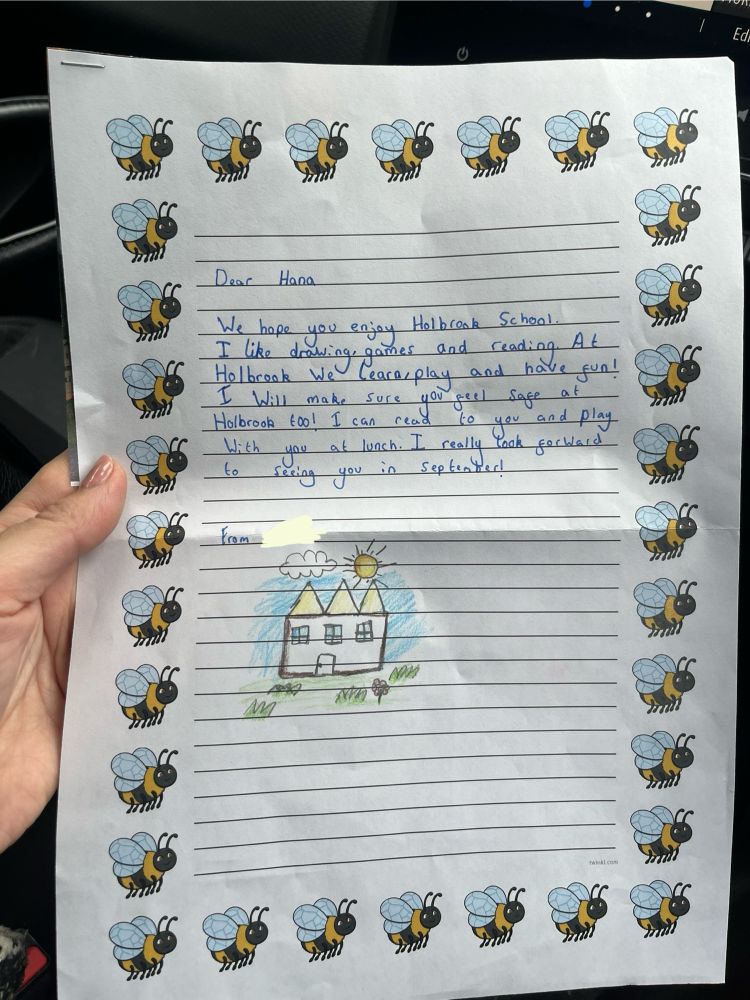 Edi
Dear Hana
We hope you enjoy Holbrook School.
I like drawing, games and reading. At
Holbrook We Learn, play and have fun!
I Will make sure you feel safe at
Holbrook too! I can read to you and play
With you at lunch. I really look forward
to seeing you in September!
From
twinkl.com